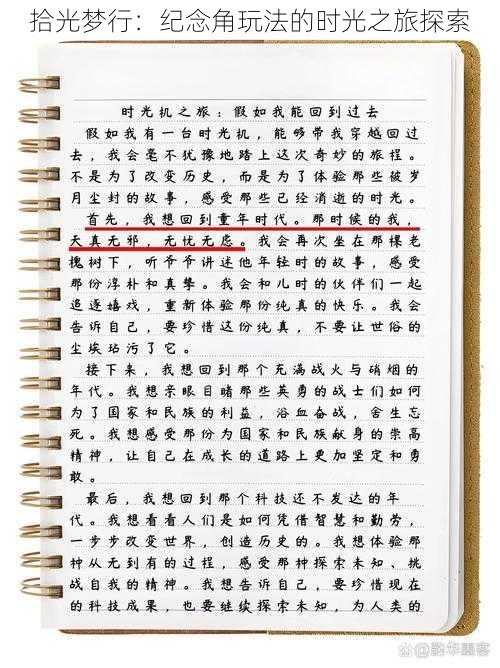 拾光梦行：纪念角玩法的时光之旅探索
时光机之旅：假如我能回到过去
假如我有一台时光机，能够带我穿越回过
去，我会毫不犹豫地踏上这次奇妙的旅程。
不是为了改变历史，而是为了体验那些被岁
月尘封的故事，感受那些已经消逝的时光。
首先，我想回到童年时代。那时候的我，
天真无邪，无忧无虑。我会再次坐在那棵老
槐树下，听爷爷讲述他年轻时的故事，感受
那份淳朴和真挚。我会和儿时的伙伴们一起
追逐嬉戏，重新体验那份纯真的快乐。我会
告诉自己，要珍惜这份纯真，不要让世俗的
尘埃玷污了它。
接下来，我想回到那个充满战火与硝烟的
年代。我想亲眼目睹那些英勇的战士们如何
为了国家和民族的利益，浴血奋战，舍生忘
死。我想感受那份为国家和民族献身的崇高
精神，让自己在成长的道路上更加坚定和勇
敢。
最后，我想回到那个科技还不发达的年
代。我想看看人们是如何凭借智慧和勤劳，
一步步改变世界，创造历史的。我想体验那
种从无到有的过程，感受那种探索未知、挑
战自我的精神。我想告诉自己，要珍惜现在
的科技成果，也要继续探索未知，为人类的